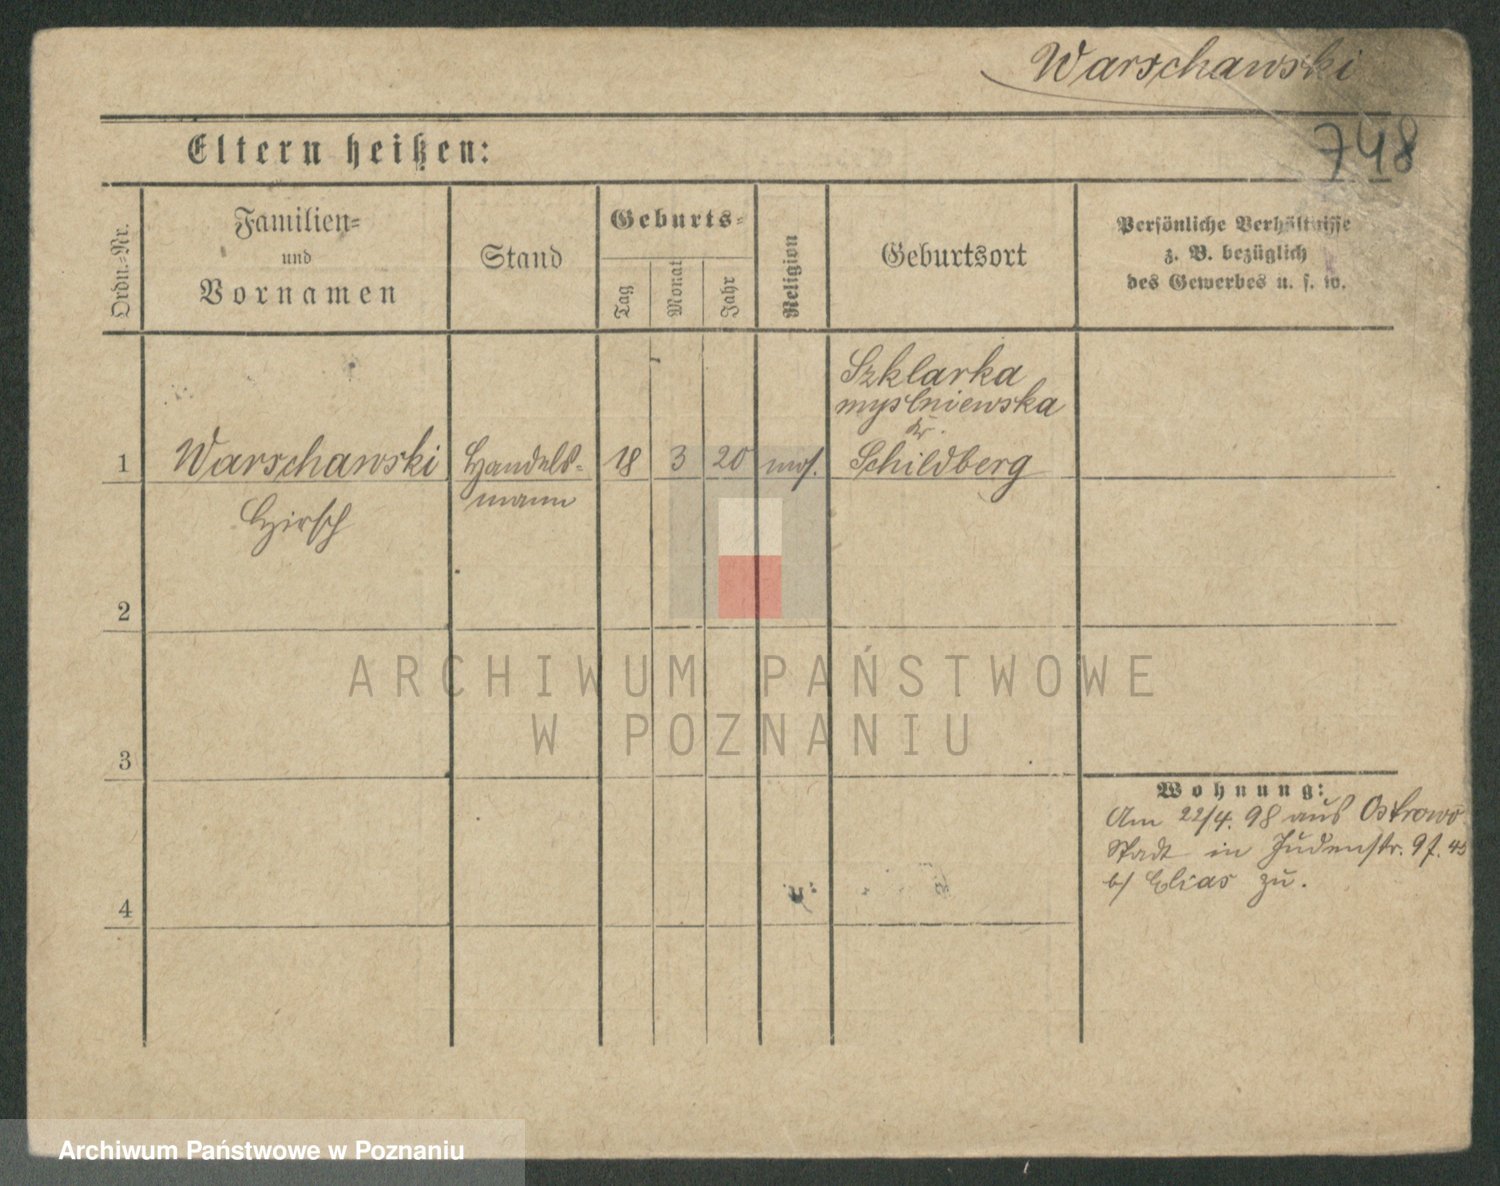 Warschawski
748
Eltern heißen:
Ordn.-Nr.
Familien-
und
Vornamen
Stand
Geburts-
Tag
Monat
Jahr
Religion
Geburtsort
Persönliche Verhältnisse
z. B. bezüglich
des Gewerbes u. s. w.
Szklarka
myslniewska
Kr.
1 Warschawski Handels- 18 3 20 mos. Schildberg
Hirsch mann
2
ARCHIWUM PAŃSTWOWE
W POZNANIU
3
Wohnung:
Am 22/4. 98 aus Ostrowo
Stadt in Judenstr. 9f. 45
b/ Elias zu.
4
Archiwum Państwowe w Poznaniu